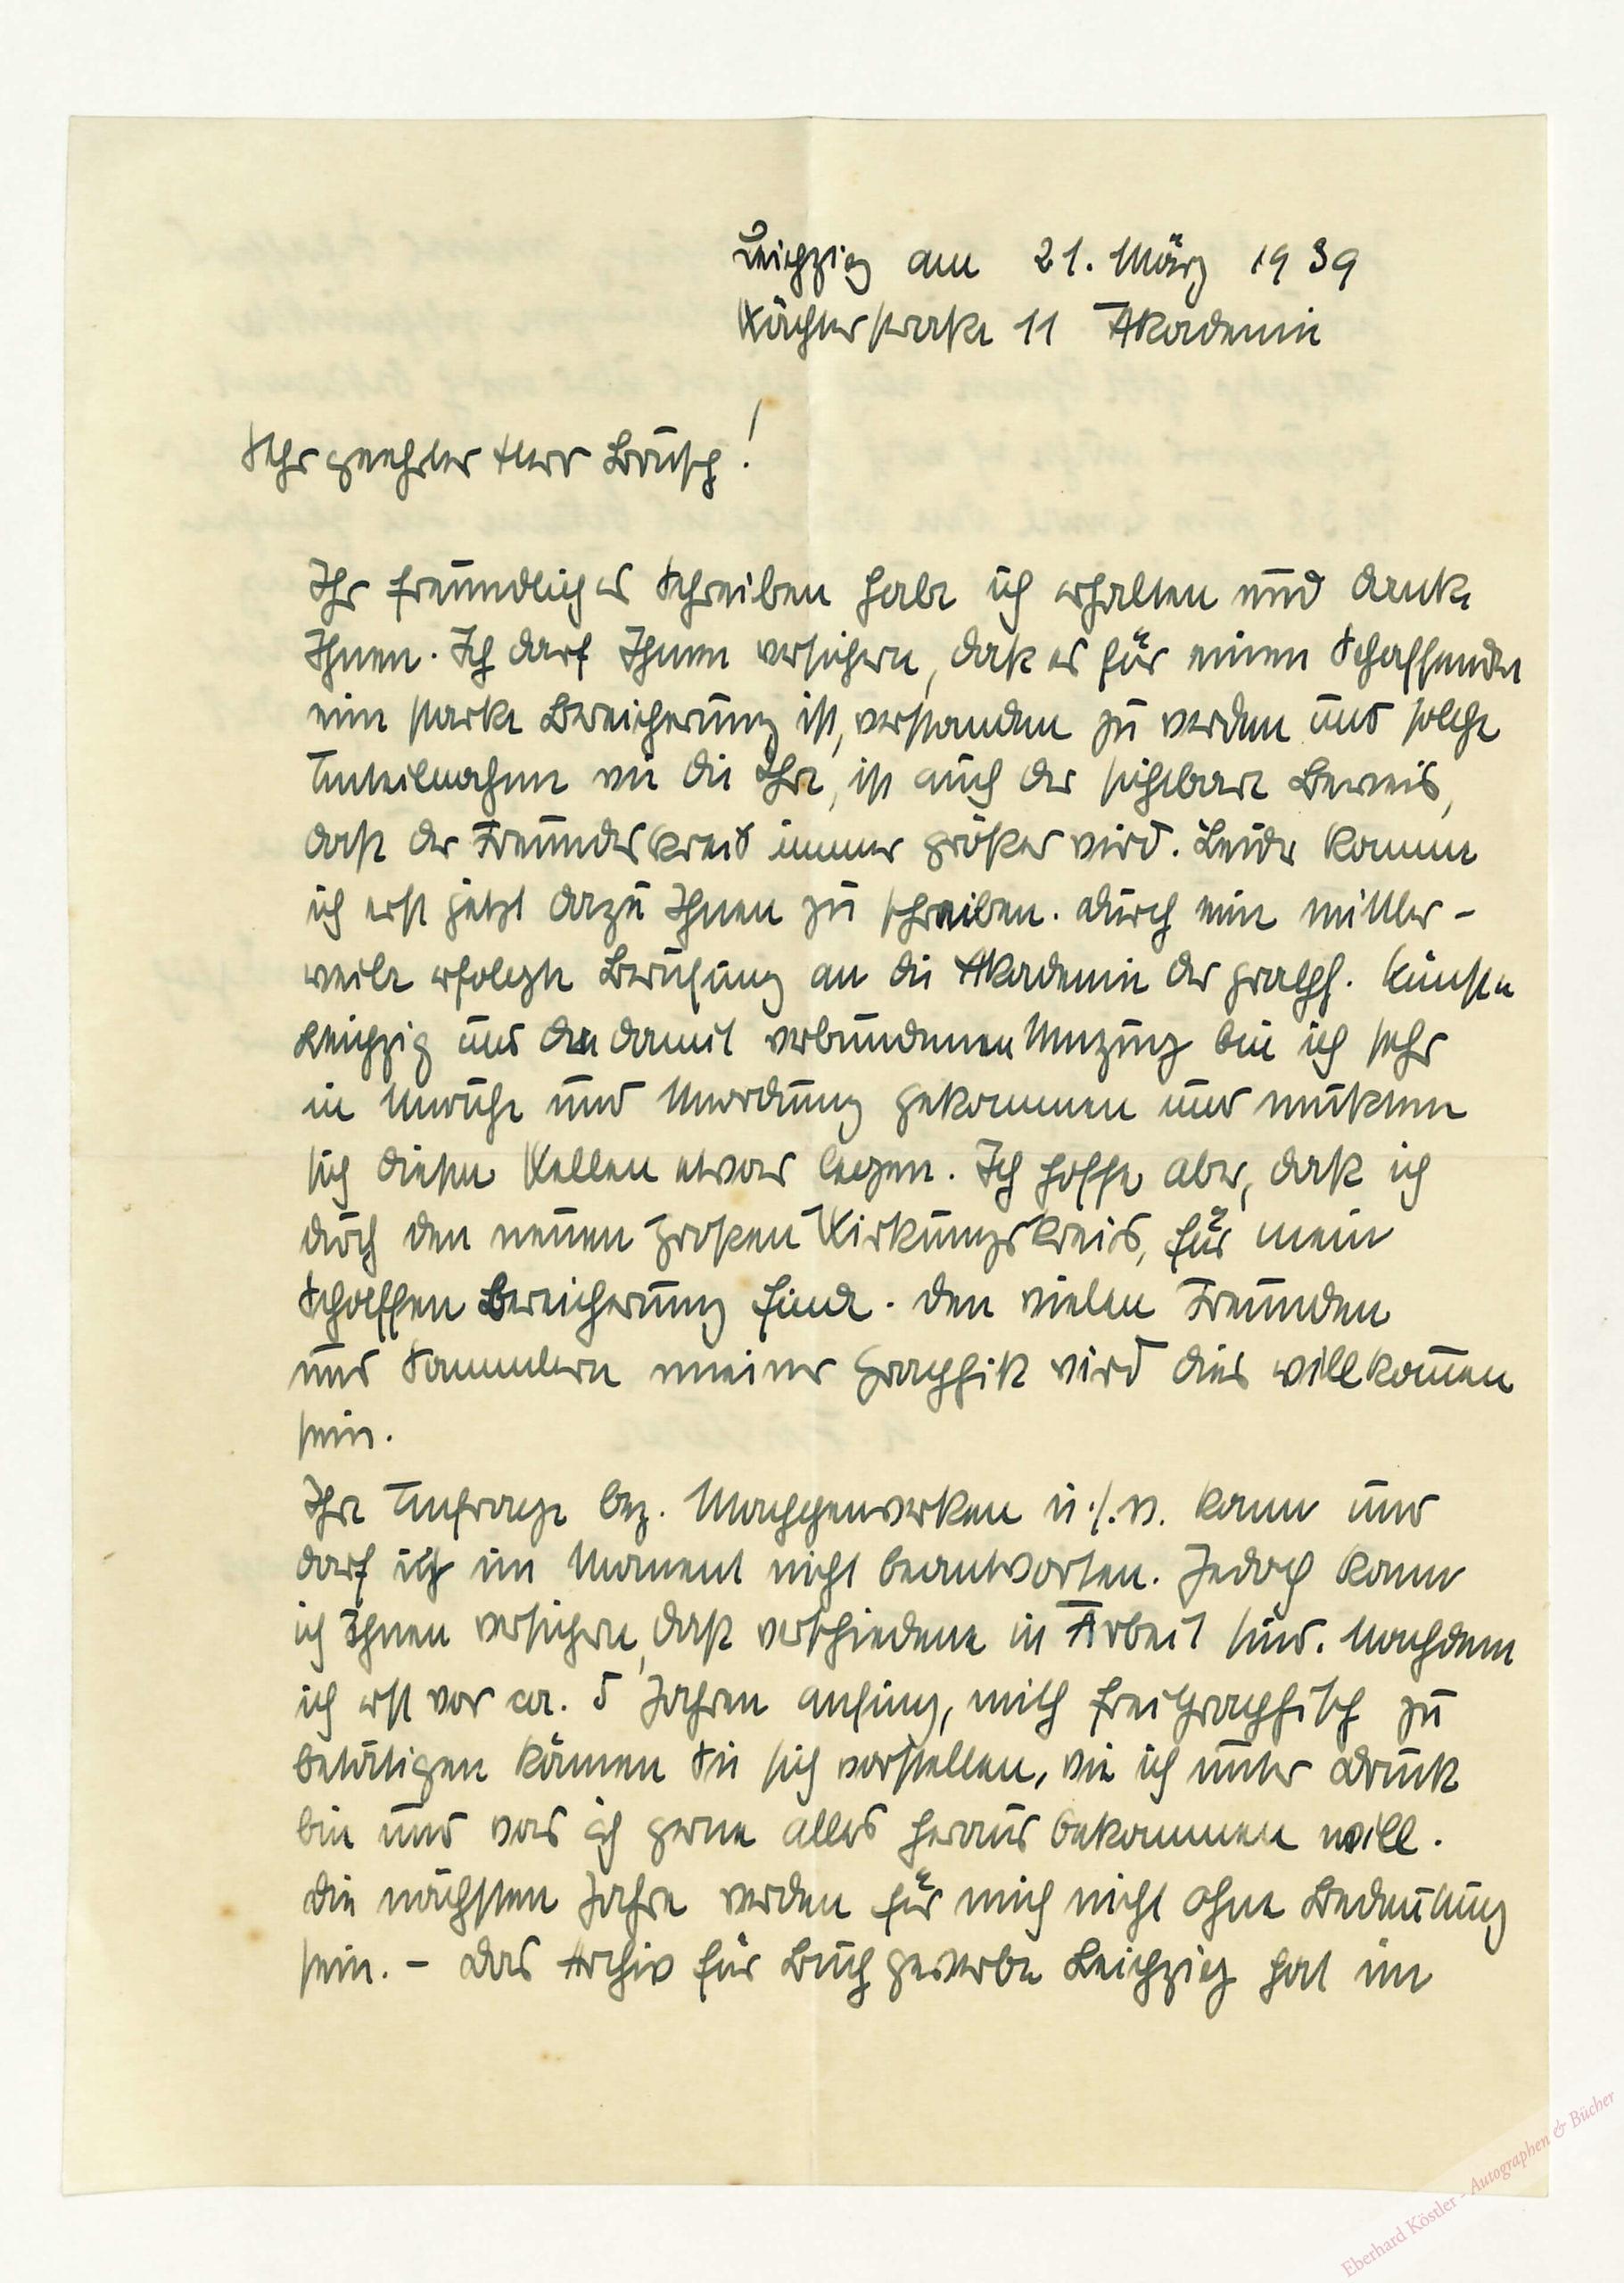 Leipzig am 21. März 1939
Wächterstraße 11 Akademie
Sehr geehrter Herr Brusch!
Ihr freundliches Schreiben habe ich erhalten und danke
Ihnen. Ich darf Ihnen versichern, daß es für einen Schaffenden
eine starke Bereicherung ist, verstanden zu werden und solche
Anteilnahme wie die Ihre, ist auch der sichtbare Beweis,
daß der Freundeskreis immer größer wird. Leider komme
ich erst jetzt dazu Ihnen zu schreiben. Durch eine mittler-
weile erfolgte Berufung an die Akademie der graph. Künste
Leipzig und den damit verbundenen Umzug bin ich sehr
in Unruhe und Unordnung gekommen und mußten
sich diese Wellen etwas legen. Ich hoffe aber, daß ich
durch den neuen großen Wirkungskreis, für mein
Schaffen Bereicherung finde. Den vielen Freunden
und Sammlern meiner Graphik wird dies willkommen
sein.
Ihre Anfrage bez. Mappenwerken u.s.w. kann und
darf ich im Moment nicht beantworten. Jedoch kann
ich Ihnen versichern, daß verschiedene in Arbeit sind. Nachdem
ich erst vor ca. 5 Jahren anfing, mich freigraphisch zu
betätigen können Sie sich vorstellen, wie ich unter Druck
bin und was ich gerne alles heraus bekommen will.
Die nächsten Jahre werden für mich nicht ohne Bedeutung
sein. – Das Archiv für Buchgewerbe Leipzig hat im
Eberhard Köstler - Autographen & Bücher